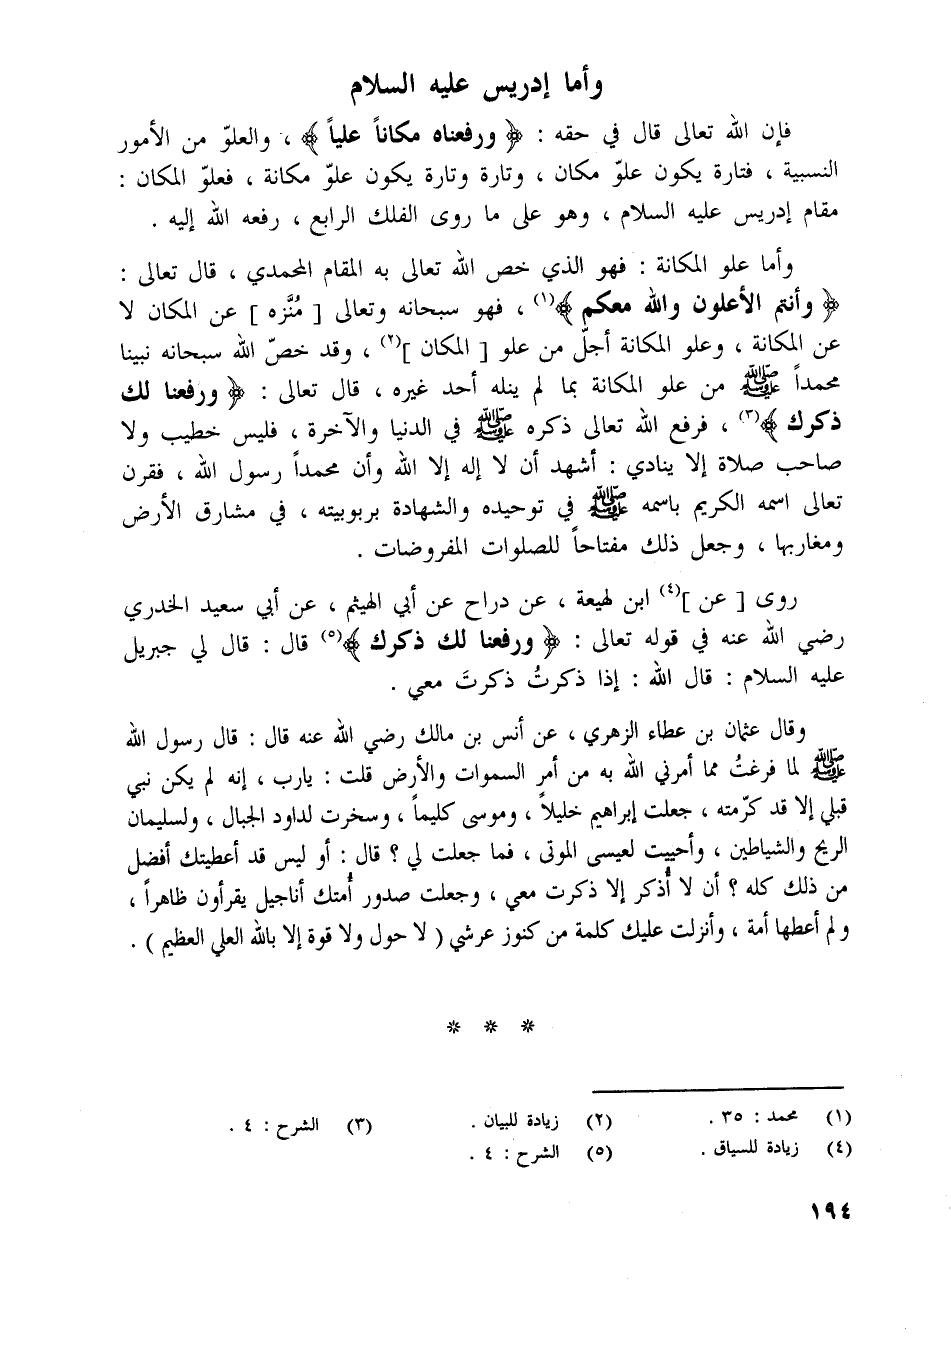 وأما إدريس عليه السلام
فإن الله تعالى قال في حقه : ﴿ ورفعناه مكاناً علياً ﴾ ، والعلوّ من الأمور
النسبية ، فتارة يكون علوّ مكان ، وتارة وتارة يكون علوّ مكانة ، فعلوّ المكان :
مقام إدريس عليه السلام ، وهو على ما روى الفلك الرابع ، رفعه الله إليه .
وأما علو المكانة : فهو الذي خص الله تعالى به المقام المحمدي ، قال تعالى :
﴿ وأنتم الأعلون والله معكم ﴾(١) ، فهو سبحانه وتعالى [ مُنَّزه ] عن المكان لا
عن المكانة ، وعلو المكانة أجلّ من علو [ المكان ](٢) ، وقد خصّ الله سبحانه نبينا
محمداً ﷺ من علو المكانة بما لم ينله أحد غيره ، قال تعالى : ﴿ ورفعنا لك
ذكرك ﴾(٣) ، فرفع الله تعالى ذكره ﷺ في الدنيا والآخرة ، فليس خطيب ولا
صاحب صلاة إلا ينادي : أشهد أن لا إله إلا الله وأن محمداً رسول الله ، فقرن
تعالى اسمه الكريم باسمه ﷺ في توحيده والشهادة بربوبيته ، في مشارق الأرض
ومغاربها ، وجعل ذلك مفتاحاً للصلوات المفروضات .
روى [ عن ](٤) ابن لهيعة ، عن دراح عن أبي الهيثم ، عن أبي سعيد الخدري
رضي الله عنه في قوله تعالى : ﴿ ورفعنا لك ذكرك ﴾(٥) قال : قال لي جبريل
عليه السلام : قال الله : إذا ذكرتُ ذكرتَ معي .
وقال عثمان بن عطاء الزهري ، عن أنس بن مالك رضي الله عنه قال : قال رسول الله
ﷺ لما فرغتُ مما أمرني الله به من أمر السموات والأرض قلت : يارب ، إنه لم يكن نبي
قبلي إلا قد كرّمته ، جعلت إبراهيم خليلاً ، وموسى كليماً ، وسخرت لداود الجبال ، ولسليمان
الريح والشياطين ، وأحييت لعيسى الموتى ، فما جعلت لي ؟ قال : أو ليس قد أعطيتك أفضل
من ذلك كله ؟ أن لا أُذكر إلا ذكرت معي ، وجعلت صدور أُمتك أناجيل يقرأون ظاهراً ،
ولم أعطها أمة ، وأنزلت عليك كلمة من كنوز عرشي ( لا حول ولا قوة إلا بالله العلي العظيم ) .
* * *
(١) محمد : ٣٥ . (٢) زيادة للبيان . (٣) الشرح : ٤ .
(٤) زيادة للسياق . (٥) الشرح : ٤ .
١٩٤